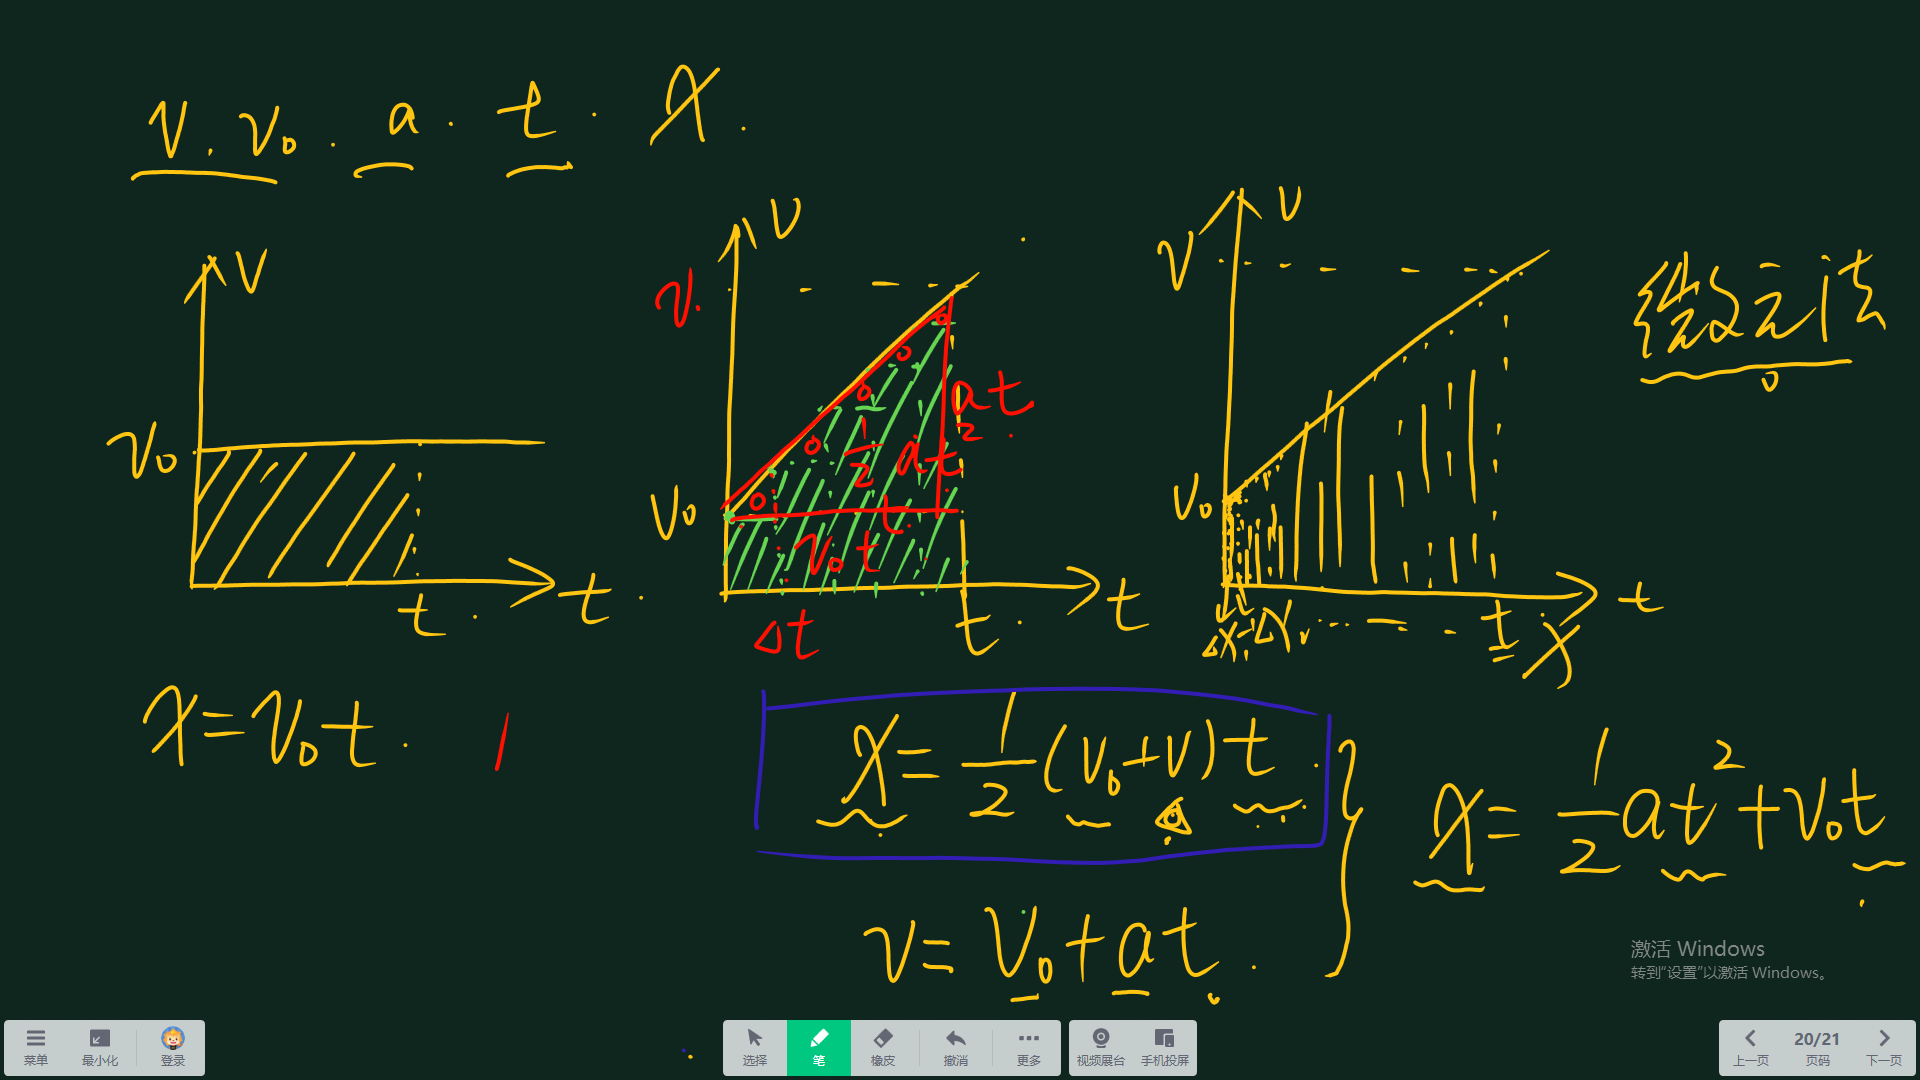 v . v₀ . a . t . x .
v
v₀
t
t .
x = v₀t .
v
v .
at
2
½ at
t
v₀
v₀t
Δt
t .
t
v
v
v₀
Δx₁ Δx₂ …
t
x
t
微元法
x = ½(v₀+v)t .
v = v₀ + at .
x = ½at² + v₀t
激活 Windows
转到“设置”以激活 Windows。
菜单 最小化 登录
选择 笔 橡皮 撤消 更多
视频展台 手机投屏
上一页 20/21 页码 下一页